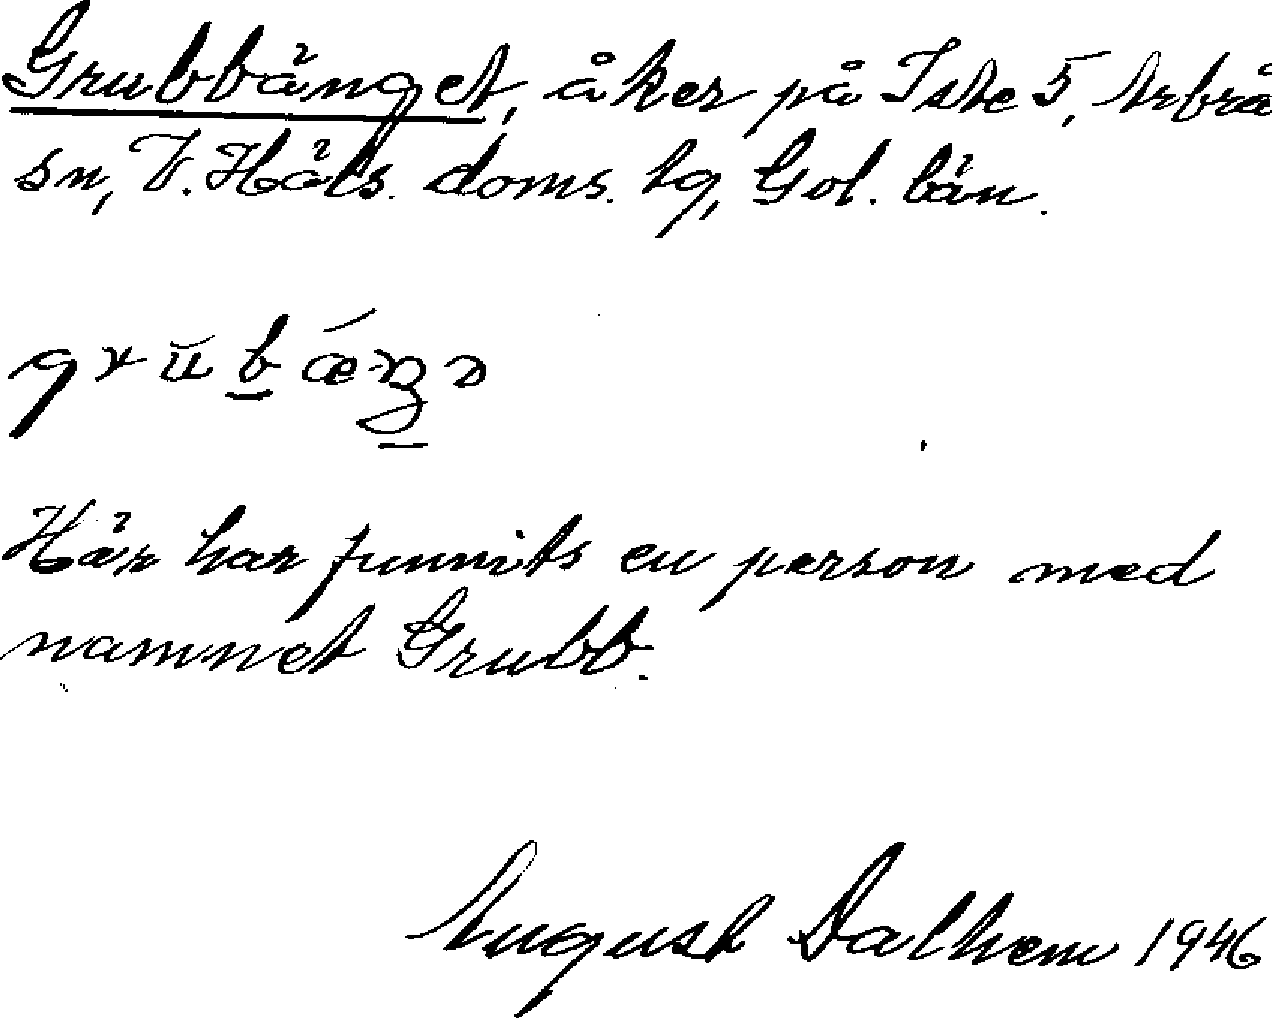 Grubbänget, åker på Iste 5, Arbrå
sn, V. Häls. doms. lg, Gvl. län.
grŭb ǽŋə
Här har funnits en person med
namnet Grubb.
August Dalhem 1946